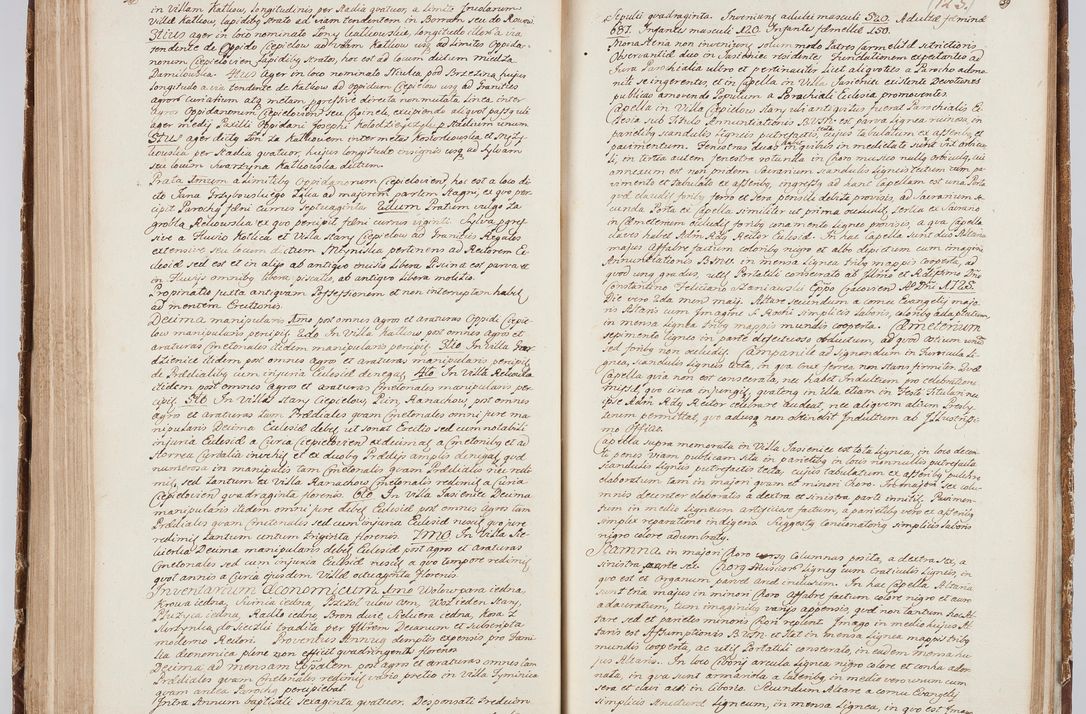 in Villam Katlow, longitudinis per Stadia quatuor a limite
Villæ Katlow, lapidibg strato ad viam tendentem in Borrow seu do
3tius ager in loco nominato Łony longitudo illorum a via
tendente de Oppido Ciepielow ad Villam Katlow usq ad limites Oppida-
norum Ciepielovien lapidibg stratos, hoc est ad locum dictum Miedza
Damilowska. 4tus Ager in loco nominato pod Brzezina hujus
longitudo a via tendente de Katlow ad oppidum Ciepielow usq ad Granities
agrorum curialium atq metam progressive directa non mutata linea inter
agros Oppidanorum Ciepielovien seu excipiendo aliquot passg ubi
ager medij Oppidani Josephi Stadium unum
5tus ager de
per Stadia quatuor hujus longitudo insignis usq ad Sylvam
seu locum Kattowska dictum.
Prata Imum a limitibg Oppidanorum Ciepielovien, hoc est a loco di-
cto Jana Grzybowskiego Łąka ad majorem partem Stagni, ex quo per-
cipit Parochg fæni currus septuaginta. 2dum Pratum vulgo Za
grobla ex quo percipit fæni currus viginti. Sylva pgres-
sive a Fluvio et Villa Stary Ciepielow ad Granities Regales
extensive seu locum dictum pertinens ad Rectorem Ec-
clesiæ sed est et in alijs ab antiquo inciso Libera Piscina est parva et
in Fluvijs omnibg libere piscatio, ab antiquo libera molitio.
Propinatio juxta antiquam Possessionem et non interruptam habet
ad mentem Erectionis.
Decima manipularis Imo post omnes agros et araturas Oppidi Ciepie-
low manipularis percipit. 2do In Villa Katlow post omnes agros et
araturas Cmetonales itidem manipularis percipit. 3tio In Villa
dzienice itidem post omnes agros et araturas manipularis percipit,
de Prædialibg cum injuria Ecclesiæ denegat. 4to In Villa
itidem post omnes agros et araturas Cmetonales manipularis per-
cipit. 5to In Villis Stary Ciepielow, Pcin, Kanachow, post omnes
agros et araturas tum Prædiales quam Cmetonales omni jure ma-
nipularis Decima Ecclesiæ debet ut sonat Erectio sed cum notabili
injuria Ecclesiæ a Curia Ciepielovien ex decimis a Cmetonibg et ad
Horrea Curialia invehit et ex duobg Prædijs amplis denegat quæ
numerosa in manipulis tam Cmetonales quam Prædiales nec redi-
mit, sed tantum ex Villa Kanachow Cmetonales redimit a Curia
Ciepielovien quadraginta florenis. 6to In Villa Jasienice Decima
manipularis itidem omni jure debet Ecclesiæ post omnes agros tam
Prædiales quam Cmetonales sed cum injuria Ecclesiæ nescit quo jure
redimit tantum centum triginta florenis. 7mo In Villa
Decima manipularis debet Ecclesiæ post agros et araturas
Cmetonales sed cum injuria Ecclesiæ nescit a quo tempore redimit
quot annis a Curia ejusdem Villæ octuaginta florenis.
Inventarium Œconomicum Imo Wołow para jedna,
Krowa jedna, Swinia jedna, Woz jeden Stary,
Płużyca jedna, Radlo jedno, Bron dwie, jedna, Kosa 1
Skrzynka do tradita per Illrem Decanum et subscripta
moderno Rectori. Proventus Annuq demptis expensis pro Fami-
lia œconomica plene non efficit quadringentos florenos
Decima ad mensam Epplem post agros et araturas omnes tam
Prædiales quam Cmetonales redimit vario pretio in Villa Tyminica
quam antea Parochg percipiebat.
Intra Annum baptisati sexaginta quatuor. Desponsati tredecim
59
Sepulti quadraginta. Inveniunt adulti masculi 520. Adultæ fæminæ
687. Infantes masculi 120. Infantes fæmellæ 150.
Monasteria non inveniunt, solummodo Patres Carmelitæ strictioris
Observantiæ duo in Jasienice residentes Fundationem expectantes ad
Jura Parochialia ultro et pertinaciter licet aliquoties a Parocho admo-
niti se ingerentes, et in Capella in Villa Jasienice existente Devotiones
publicas amovendo Populum a Parochiali Ecclesia promoventes.
Capella in Villa Ciepielow Stary ubi antiquitus fuerat Parochialis Ec-
clesia sub Titulo Annuntiationis BVMæ est parva lignea ruinosa, in
parietibg scandulis ligneis putrefactis tecta cujus tabulatum ex asseribg et
pavimentum. Fenestras duas habet in quibus in medietate sunt vitri orbicu-
li, in tertia autem fenestra rotunda in Choro musico nullg orbiculg, cui
annexum est non pridem Sacrarium scandulis ligneis tectum cum pa-
vimento et tabulato ex asseribg, ingressg ad hanc Capellam est una Porta
quæ claudit foribg ferro et sera pensile debita provisis, ad Sacrarium se-
cunda Porta ex Capella similiter ut prima occludit, tertia ex Sacrario
in Cæmeterium occludit foribg cum instrumento ligneo provisis, a qua Capella
claves habet Adm Rdg Rector Ecclesiæ. In hac Capella sunt duo Altaria
majus Affabre factum coloribg nigro et albo depictum cum imagine
Annuntiationis BVMæ in mensa lignea tribg mappis cooperta, ad
quod ung gradus, utit Portatili consecrato ab Illmo et Rdissmo Dno
Constantino Feliciano Szaniawski Eppo Cracovien Ao Dni 1725.
Die vero 2da men Maij. Altare secundum a cornu Evangelij majo-
ris Altaris cum Imagine S Rochi simplicis laboris, coloribg adapturatum,
in mensa lignea tribg mappis mundis cooperta. Cæmeterium
sepimento ligneo in parte defectuoso obductum, ad quod ostium unum
sed foribg non occludit. Campanile ad signandum in turricula li-
gnea scandulis ligneis tecta, in qua crux ferrea non stans firmiter. Quæ
Capella quia non est consecrata, nec habet Indultum pro celebratione
missæ, quo circa injungit, quatenq in illa etiam in Festo Titulari nu
ipse Adm Rdg Rector celebrare audeat, nec aliquem alium Presby-
terum permittat, quo adusq non obtinebit Indultum ab Illustrissi-
mo Officio.
Capella supra memorata in Villa Jasienice est tota lignea, in loco decen-
ti penes viam publicam sita in parietibg in locis nonnullis putrefacta
scandulis ligneis putrefactis tecta, cujus tabulatum ex asseribg pulchre
elaboratum tam in majori quam et minori Choro. In majori sex colu-
mnis decenter elaboratis a dextra et sinistra parte innitit. Pavimen-
tum in medio ligneum artificiose factum, a parietibg vero ex asseribg
simplex reparatione indigens. Suggestg concionatorig simplicis laboris
nigro colore adumbratg.
Scamna in majori Choro versg columnas posita, a dextra sex, a
sinistra parte sex. Chorg Musicorum ligneg cum craticulis ligneis, in
quo est et Organum parvum inclusum. In hac Capella Altaria
sunt tria majus in minori Choro Affabre factum colore nigro et auro
adauratum, tum imaginibg varijs appensis, quod non tantum hoc Al-
tare sed et parietes minoris Chori replent. Imago in medio hujus Al-
taris est Assumptionis BVMæ et stat in mensa lignea mappis tribg
mundis cooperta, ac utit Portatili consecrato, in eadem mensa hu-
jus Altaris. In loco Ciborij arcula lignea nigro colore et concha ador-
nata, in qua sunt armariola a lateribg in medio vero unum cum
sera et clavi acsi in Ciborio. Secundum Altare a cornu Evangelij
simplicis structuræ ligneum, in mensa lignea, in quo est Imago